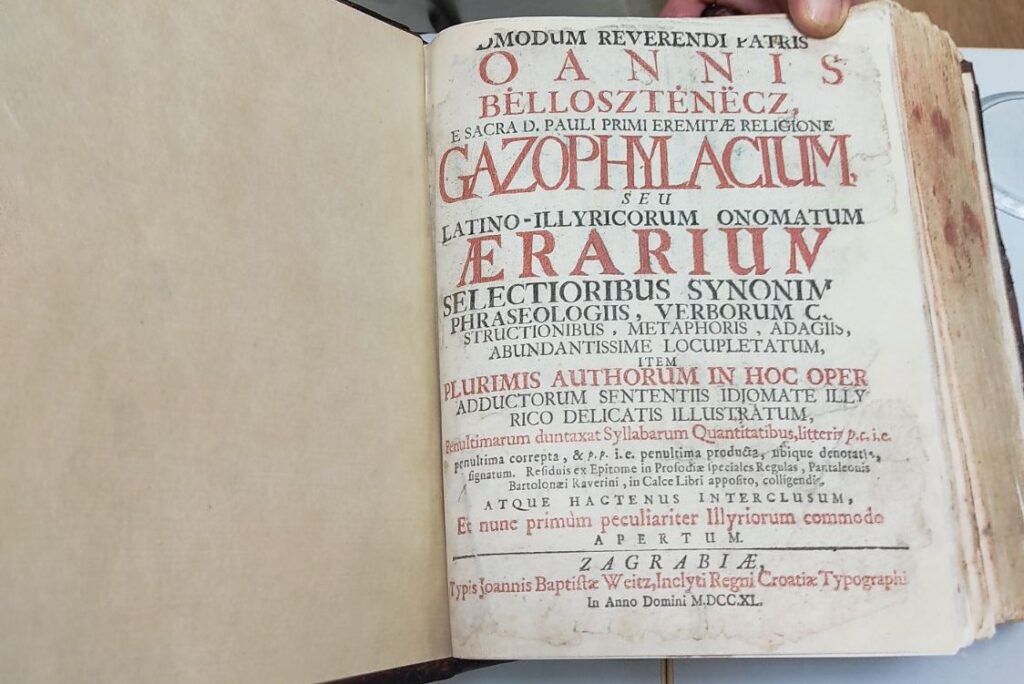 DMODUM REVERENDI PATRIS
OANNIS
BĖLLOSZTĖNËCZ,
E SACRA D. PAULI PRIMI EREMITÆ RELIGIONE
GAZOPHYLACIUM,
SEU
LATINO-ILLYRICORUM ONOMATUM
ÆRARIUM
SELECTIORIBUS SYNONIM
PHRASEOLOGIIS, VERBORUM C
STRUCTIONIBUS, METAPHORIS, ADAGIIS,
ABUNDANTISSIME LOCUPLETATUM,
ITEM
PLURIMIS AUTHORUM IN HOC OPER
ADDUCTORUM SENTENTIIS IDJOMATE ILLY
RICO DELICATIS ILLUSTRATUM,
Penultimarum duntaxat Syllabarum Quantitatibus, litteris p.c. i.e.
penultima correpta, & p.p. i.e. penultima producta, ubique denotatis,
signatum. Residuis ex Epitome in Prosodiæ speciales Regulas, Pantaleonis
Bartolonæi Raverini, in Calce Libri apposito, colligendis,
ATQUE HACTENUS INTERCLUSUM,
Et nunc primùm peculiariter Illyriorum commodo
APERTUM.
ZAGRABIÆ,
Typis Joannis Baptistæ Weitz, Inclyti Regni Croatiæ Typographi
In Anno Domini M.DCC.XL.